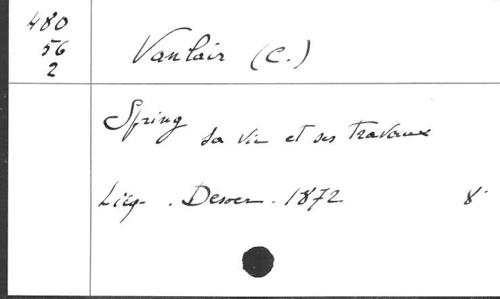 480
56
2
Vanlair (C.)
Spring sa vie et ses travaux
Liég. Desoer. 1872 8°